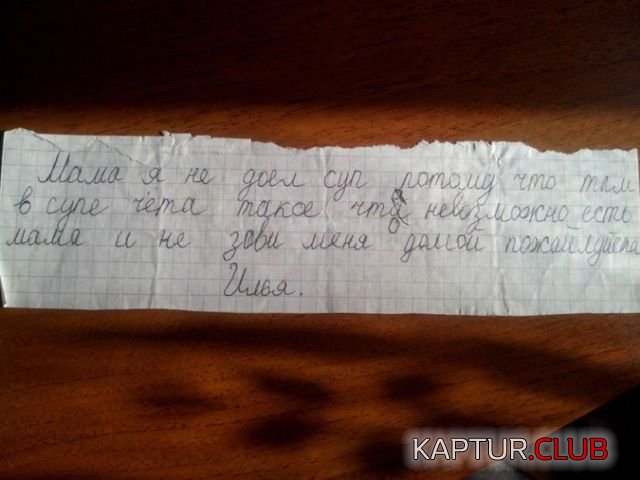 Мама я не доел суп потому что там
в супе чёта такое что невозможно есть
мама и не зови меня домой пожайлуйста
Илья.
KAPTUR.CLUB